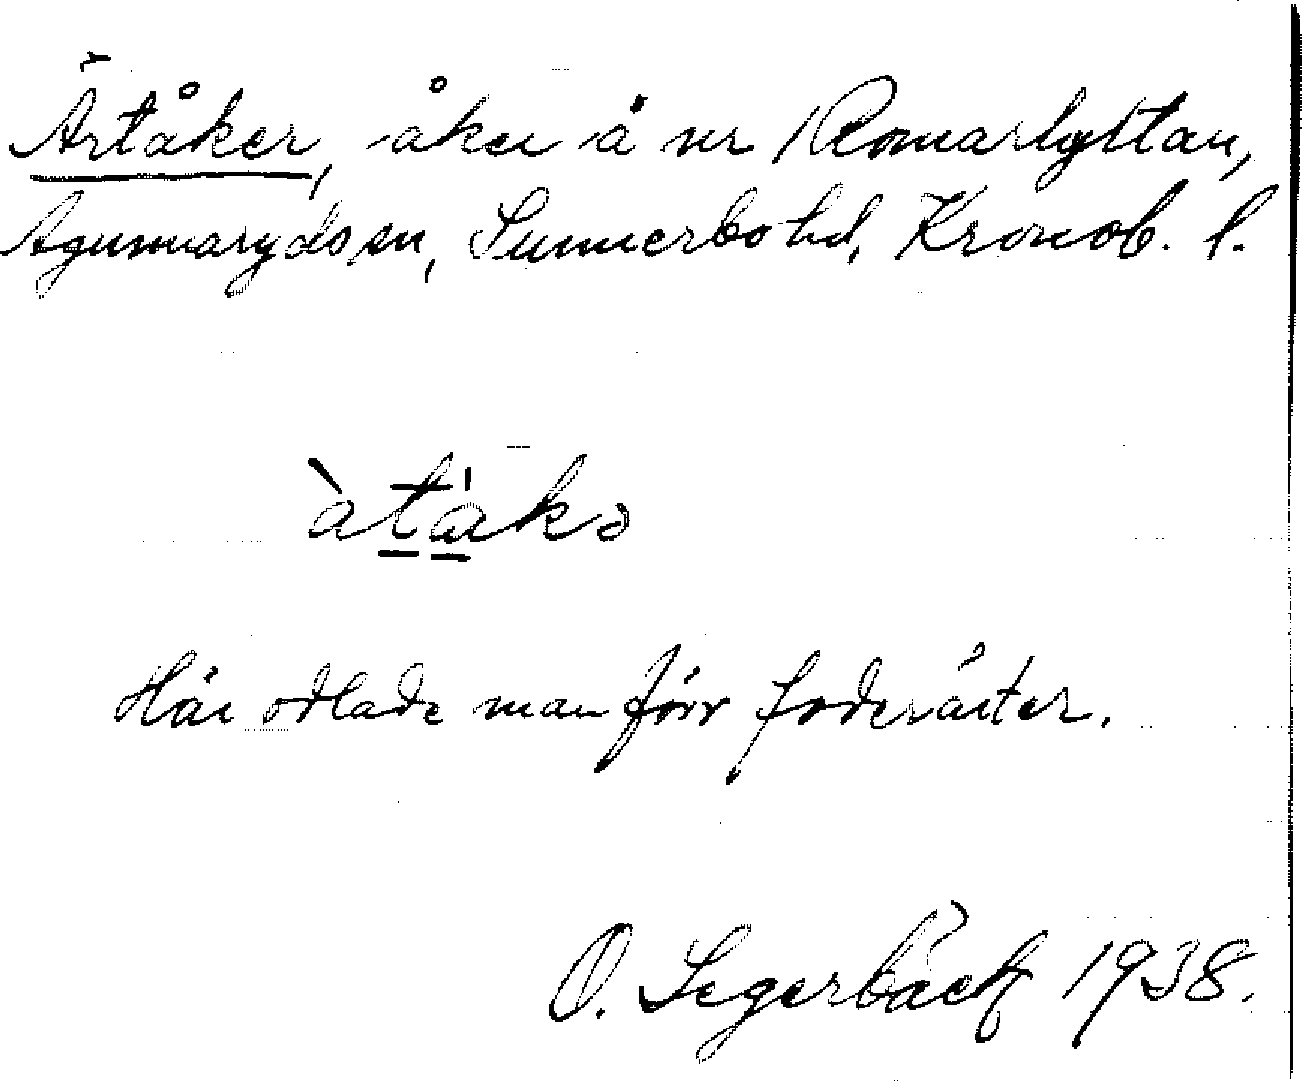 Ärtåker, åker å nr 1 Romarlyckan,
Agunnarydssn, Sunnerbo hd, Kronob. l.
àtákə
Här odlade man förr foderärter.
O. Segerbäck 1938.